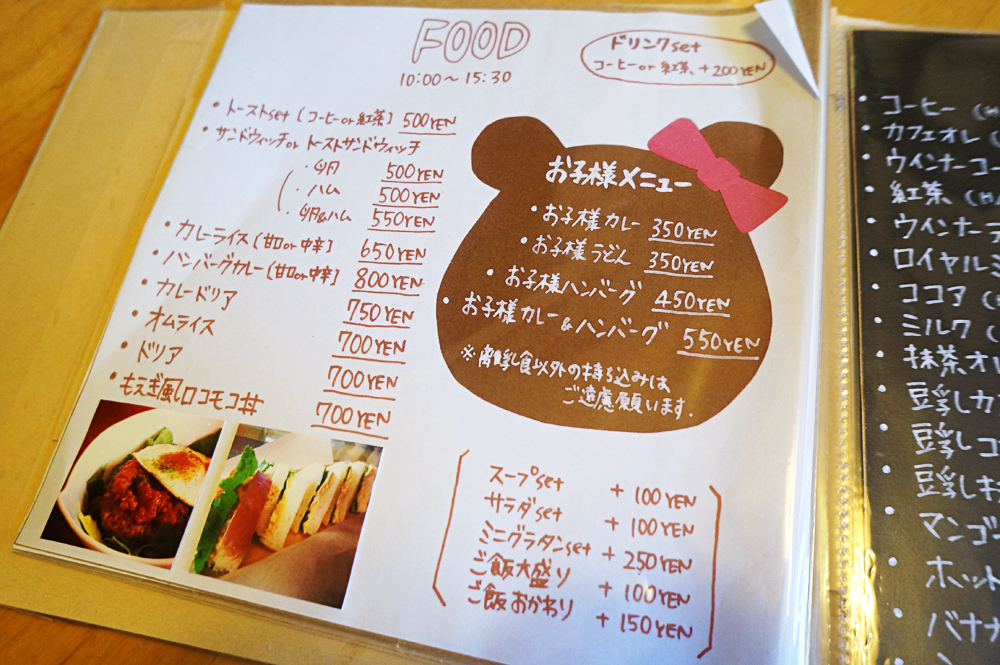 FOOD
10:00～15:30
ドリンクset
コーヒーor紅茶 +200YEN
・トーストset [コーヒーor紅茶] 500YEN
・サンドウィッチor トーストサンドウィッチ
・卵 500YEN
・ハム 500YEN
・卵&ハム 550YEN
・カレーライス [甘口or中辛] 650YEN
・ハンバーグカレー [甘口or中辛] 800YEN
・カレードリア 750YEN
・オムライス 700YEN
・ドリア 700YEN
・もえぎ風ロコモコ丼 700YEN
お子様メニュー
・お子様カレー 350YEN
・お子様うどん 350YEN
・お子様ハンバーグ 450YEN
・お子様カレー&ハンバーグ 550YEN
※離乳食以外の持ち込みは
ご遠慮願います.
スープset +100YEN
サラダset +100YEN
ミニグラタンset +250YEN
ご飯大盛り +100YEN
ご飯おかわり +150YEN
・コーヒー
・カフェオレ
・ウインナーコー
・紅茶
・ウインナーテ
・ロイヤルミ
・ココア
・ミルク
・抹茶オレ
・豆乳カ
・豆乳コ
・豆乳キ
・マンゴー
・ホット
・バナナ